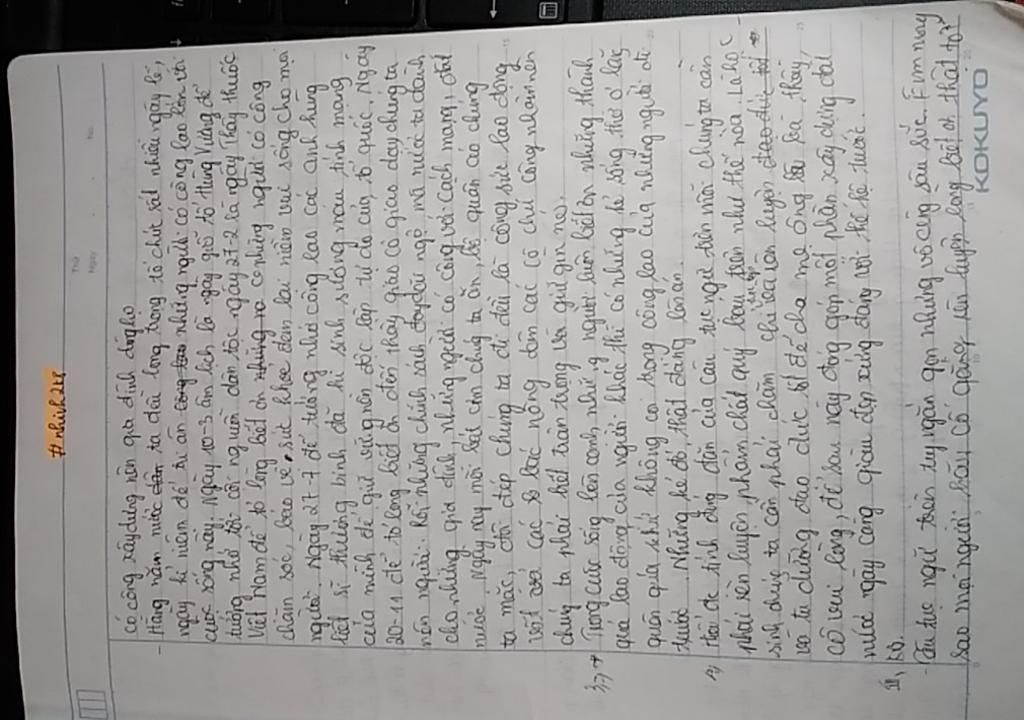 #nhinh2k8
Thứ
Ngày
No.
có công xây dựng nên gia đình dòng họ
- Hàng năm nước ta đều long trọng tổ chức rất nhiều ngày lễ,
ngày kỉ niệm để tri ân những người có công lao lớn với
cuộc sống này. Ngày 10-3 âm lịch là ngày giỗ tổ Hùng Vương để
tưởng nhớ tới cội nguồn dân tộc, ngày 27-2 là ngày Thầy thuốc
Việt Nam để tỏ lòng biết ơn những người có công
chăm sóc, bảo vệ sức khỏe đem lại niềm vui sống cho mọi
người. Ngày 27-7 để tưởng nhớ công lao các anh hùng
liệt sĩ thương binh đã hi sinh xương máu tính mạng
của mình để giữ vững nền độc lập tự do của tổ quốc. Ngày
20-11 để tỏ lòng biết ơn đến thầy giáo cô giáo dạy chúng ta
nên người. Rồi những chính sách đãi ngộ mà nước ta dành
cho những gia đình, những người có công với cách mạng, đất
nước. Ngày nay mỗi bát cơm chúng ta ăn, bộ quần áo chúng
ta mặc, chỗ đẹp chúng ta đi đều là công sức lao động
vất vả các cô bác nông dân các cô chú công nhân nên
chúng ta phải biết trân trọng và giữ gìn nó.
3, → Trong cuộc sống bên cạnh những người luôn biết ơn những thành
quả lao động của người khác thì có những kẻ sống thờ ơ lãng
quên quá khứ không coi trọng công lao của những người đi
trước. Những kẻ đó, thật đáng lên án.
4, Thấy được tính đúng đắn của câu tục ngữ trên mỗi chúng ta cần
phải rèn luyện phẩm chất quý báu trên như thế nào. Là học
sinh chúng ta cần phải chăm chỉ học tập rèn luyện
và tu dưỡng đạo đức tốt để cha mẹ ông bà, thầy
cô vui lòng, để sau này đóng góp một phần xây dựng đất
nước ngày càng giàu đẹp xứng đáng với thế hệ trước.
III, KB.
- Câu tục ngữ trên tuy ngắn gọn nhưng vô cùng sâu sắc. Em mong
sao mọi người hãy cố gắng rèn luyện lòng biết ơn thật tốt
KOKUYO